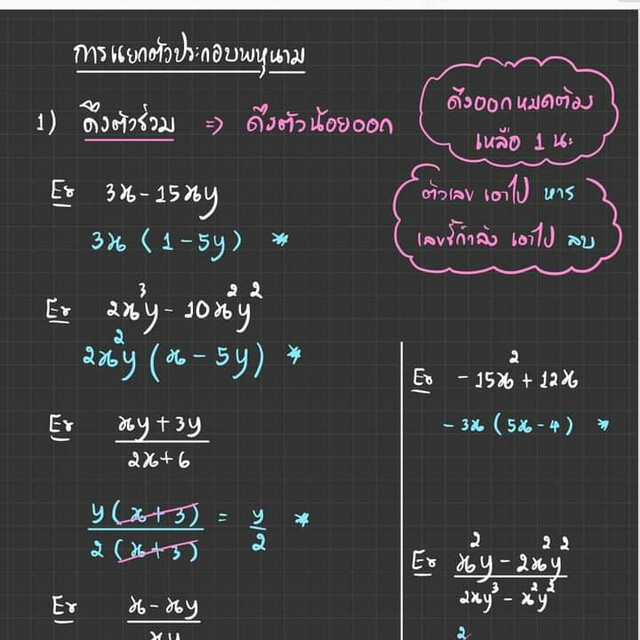 การแยกตัวประกอบพหุนาม
1) ดึงตัวร่วม => ดึงตัวน้อยออก
ดึงออกหมดต้อง
เหลือ 1 นะ
ตัวเลข เอาไป หาร
เลขชี้กำลัง เอาไป ลบ
Ex 3x - 15xy
3x (1 - 5y) *
Ex 2x³y - 10x²y²
2x²y (x - 5y) *
Ex xy + 3y
2x + 6
y (x + 3) = y *
2 (x + 3) 2
Ex x - xy
xy
Ex - 15x² + 12x
- 3x (5x - 4) *
Ex x²y - 2x²y²
2xy³ - x²y²
2